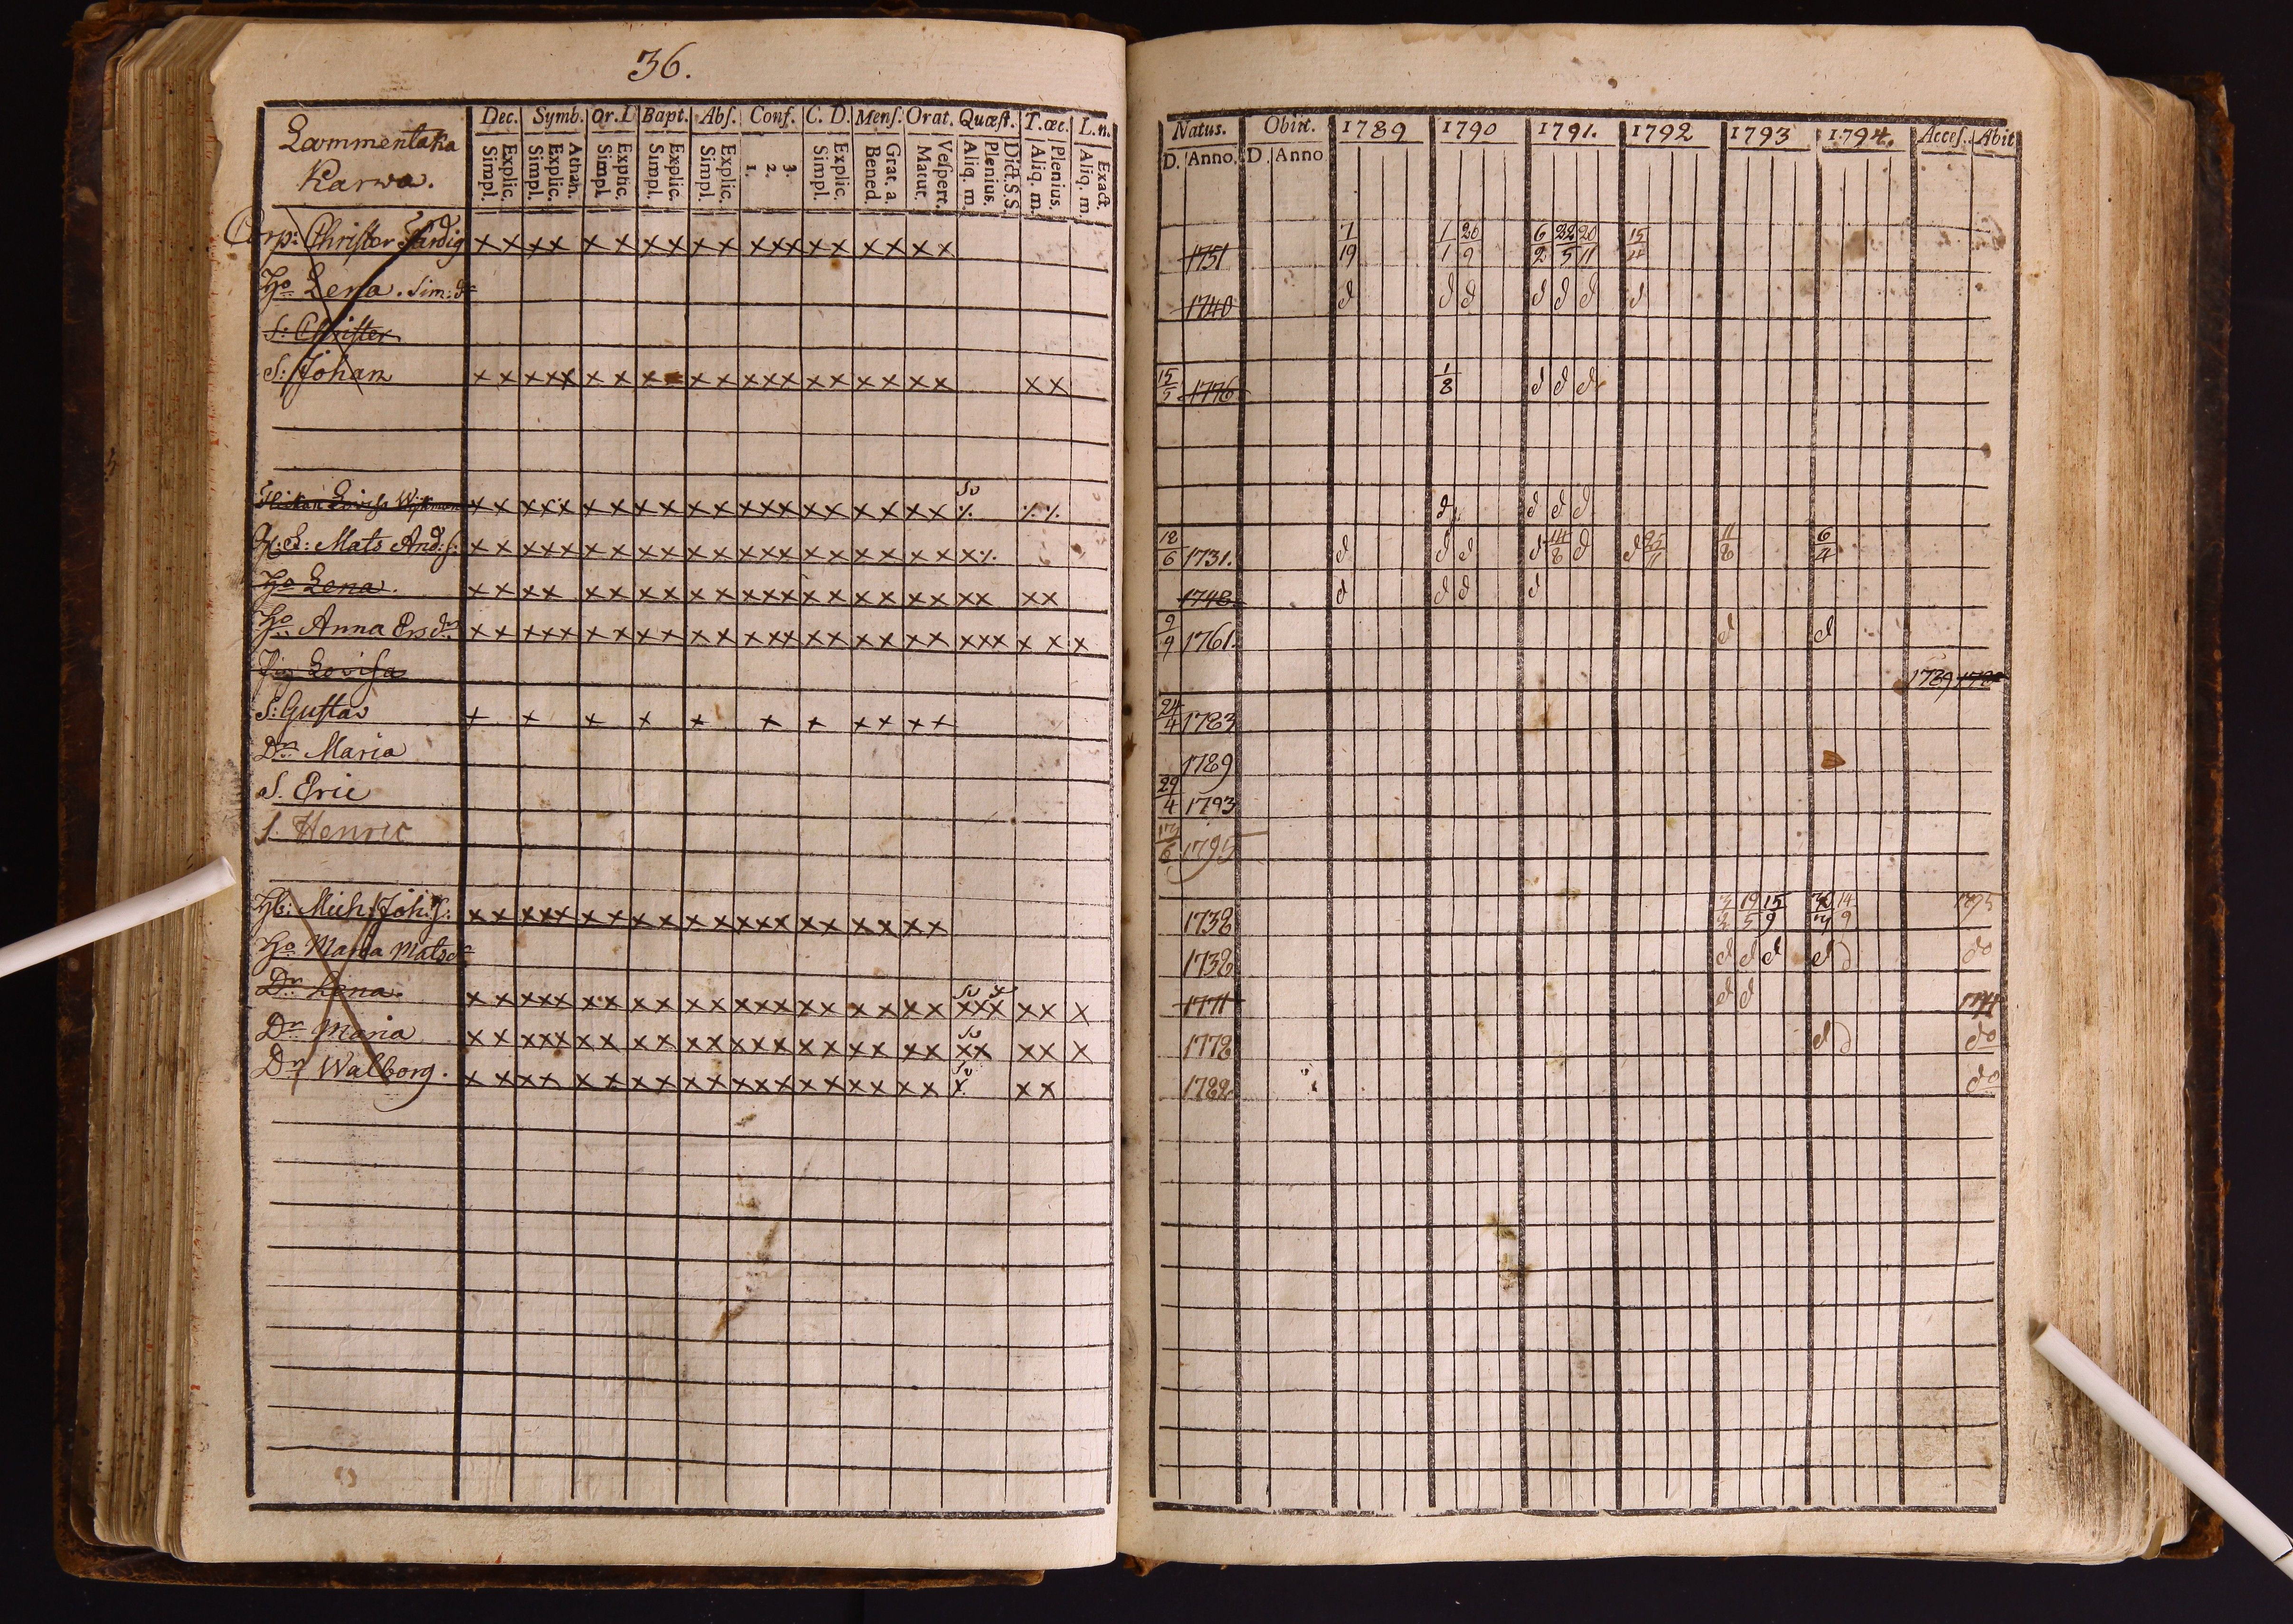 36.
Lammentaka
Karwa.
Dec. Symb. Or. D Bapt. Abs. Conf. C. D. Mens. Orat. Quæst. T. œc. L. n.
Simpl. Explic. Simpl. Explic. Athan. Simpl. Explic. Simpl. Explic. Simpl. Explic. 1. 2. 3. Simpl. Explic. Bened. Grat. a. Matut. Vespert. Aliq. m. Plenius. Dict. S. S. Aliq. m. Plenius. Aliq. m. Exact.
Corp: Christer Färdig x x x x x x x x x x x x x x x x x x x
Ho Lena. Sim: dr
S: Christer
S: Johan x x x x x x x x x x x x x x x x x x x x x x
Lovisa Wijkman x x x x x x x x x x x x x x x x x x x x
Mats And: s: x x x x x x x x x x x x x x x x x x x x x
Ho Lena. x x x x x x x x x x x x x x x x x x x x x x x
Ho Anna Ersdr x x x x x x x x x x x x x x x x x x x x x x x x x x
Lovisa
S: Gustav x x x x x x x x x x x
Dr Maria
S. Eric
S. Henric
Hb: Mich: Joh: s: x x x x x x x x x x x x x x x x x x x x
Ho Maria Matsdr
Dr Lena. x x x x x x x x x x x x x x x x x x x x x x x x x x
Dr Maria x x x x x x x x x x x x x x x x x x x x x x x x x
Dr Walborg. x x x x x x x x x x x x x x x x x x x x x x
Natus. Obiit. 1789 1790 1791. 1792 1793 1794. Acces. Abit
D. Anno. D. Anno
1751 7/19 1/1 20/9 6/2 22/5 20/11 15/4
1740 d d d d d d d
15/5 1776 1/8 d d d
d d d d
18/6 1731. d d d d 14/8 d d 25/11 11/8 6/4
1748 d d d d
9/9 1761. d d
1789
24/4 1783
1789
29/4 1793
17/6 1795
1738 3/3 19/5 15/9 14/9 1795
1738 d d d d d do
1771 d d 1794
1778 d d do
1782 do